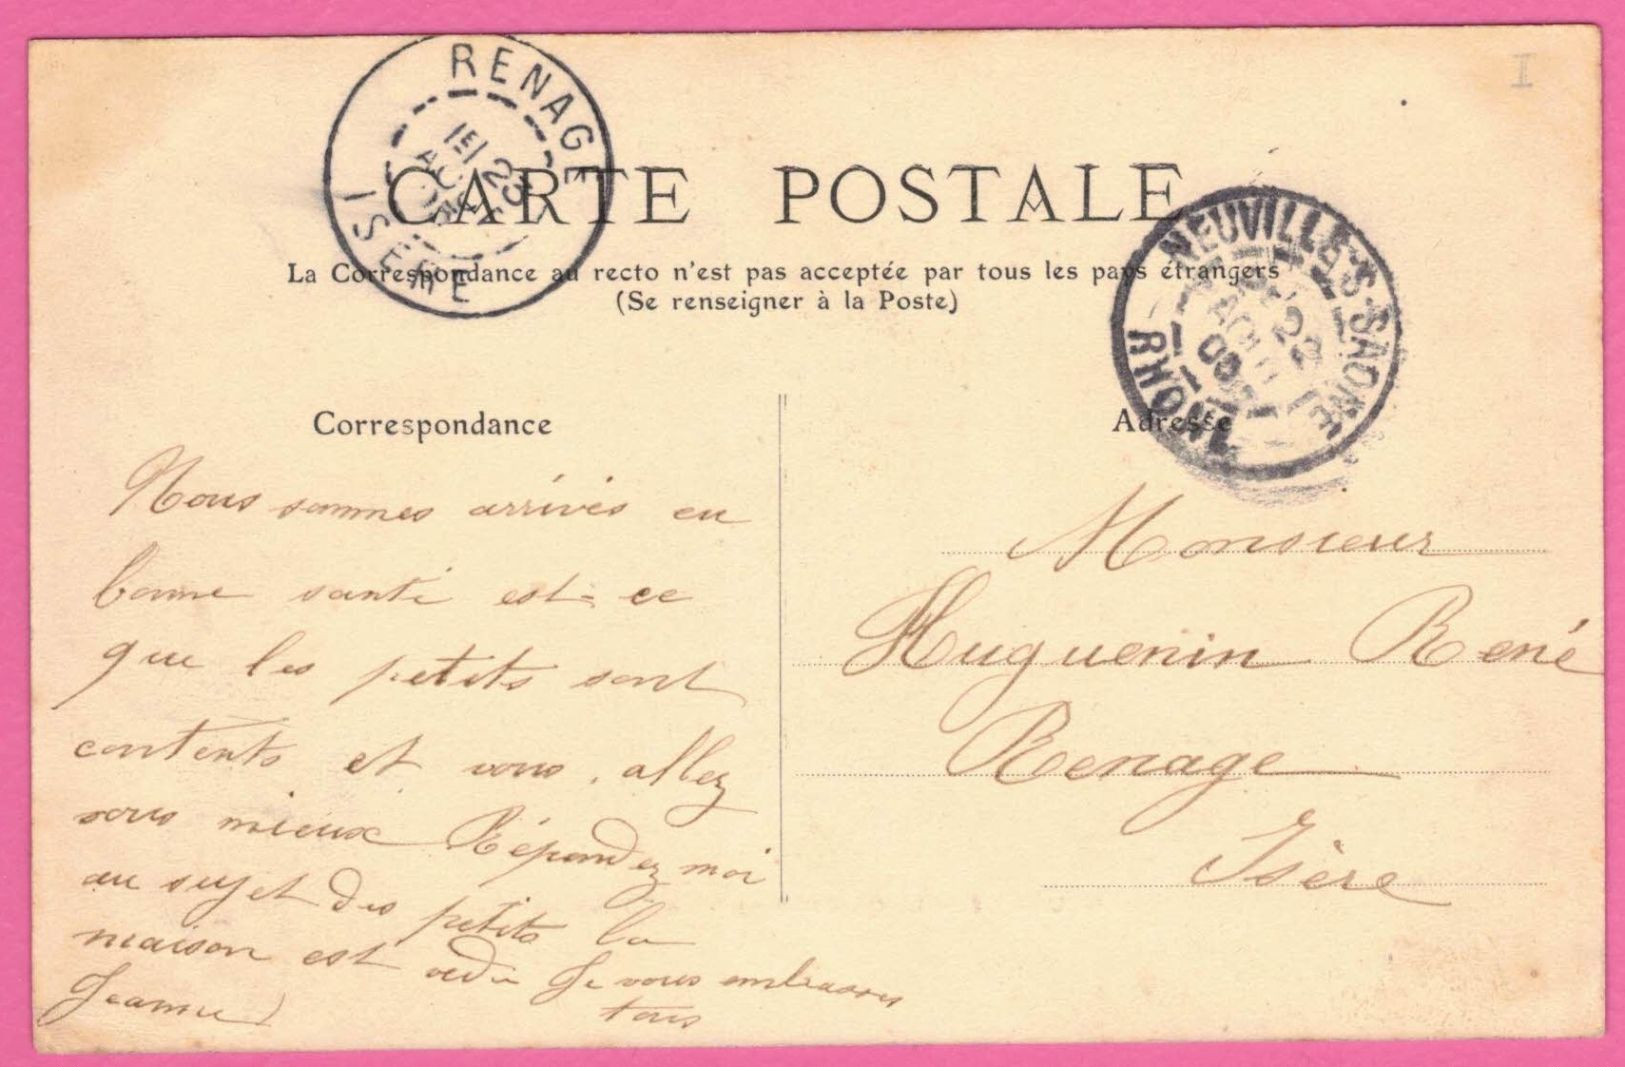 I
RENAGE
23
ISÈRE
CARTE POSTALE
NEUVILLE-S-SAONE
22
AOUT
RHÔNE
La Correspondance au recto n'est pas acceptée par tous les pays étrangers
(Se renseigner à la Poste)
Correspondance
Nous sommes arrivés en
bonne santé est-ce
que les petits sont
contents et vous, allez
vous mieux Répondez moi
au sujet des petits la
maison est Je vous embrasse
tous
Jeanne
Adresse
Monsieur
Huguenin René
Renage
Isère